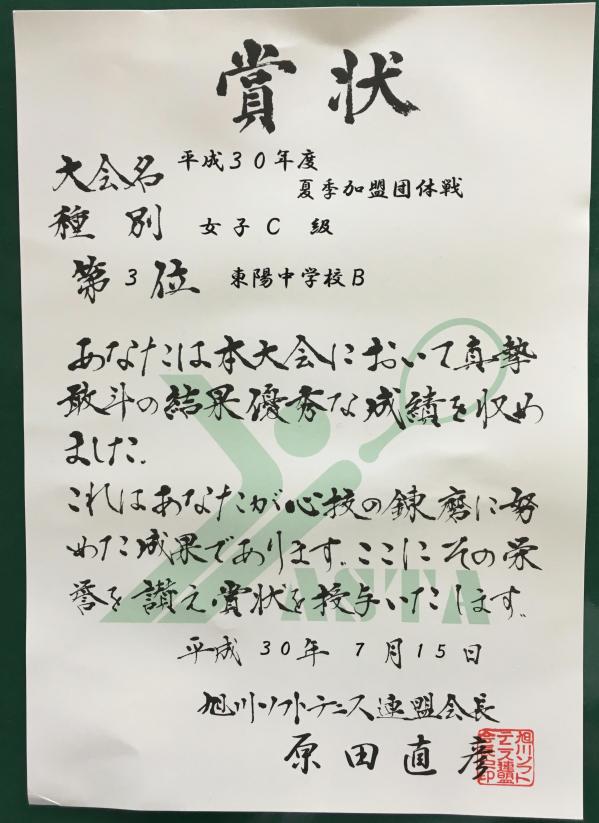 賞状
大会名 平成30年度
夏季加盟団体戦
種別 女子C 級
第3位 東陽中学校B
あなたは本大会において真摯
敢斗の結果優秀な成績を収め
ました.
これはあなたが心技の錬磨に努
めた成果であります。ここにその栄
誉を讃え賞状を授与いたします。
ASTA
平成30年7月15日
旭川ソフトテニス連盟会長
原田直彦
旭川ソフト
テニス連盟
会長之印